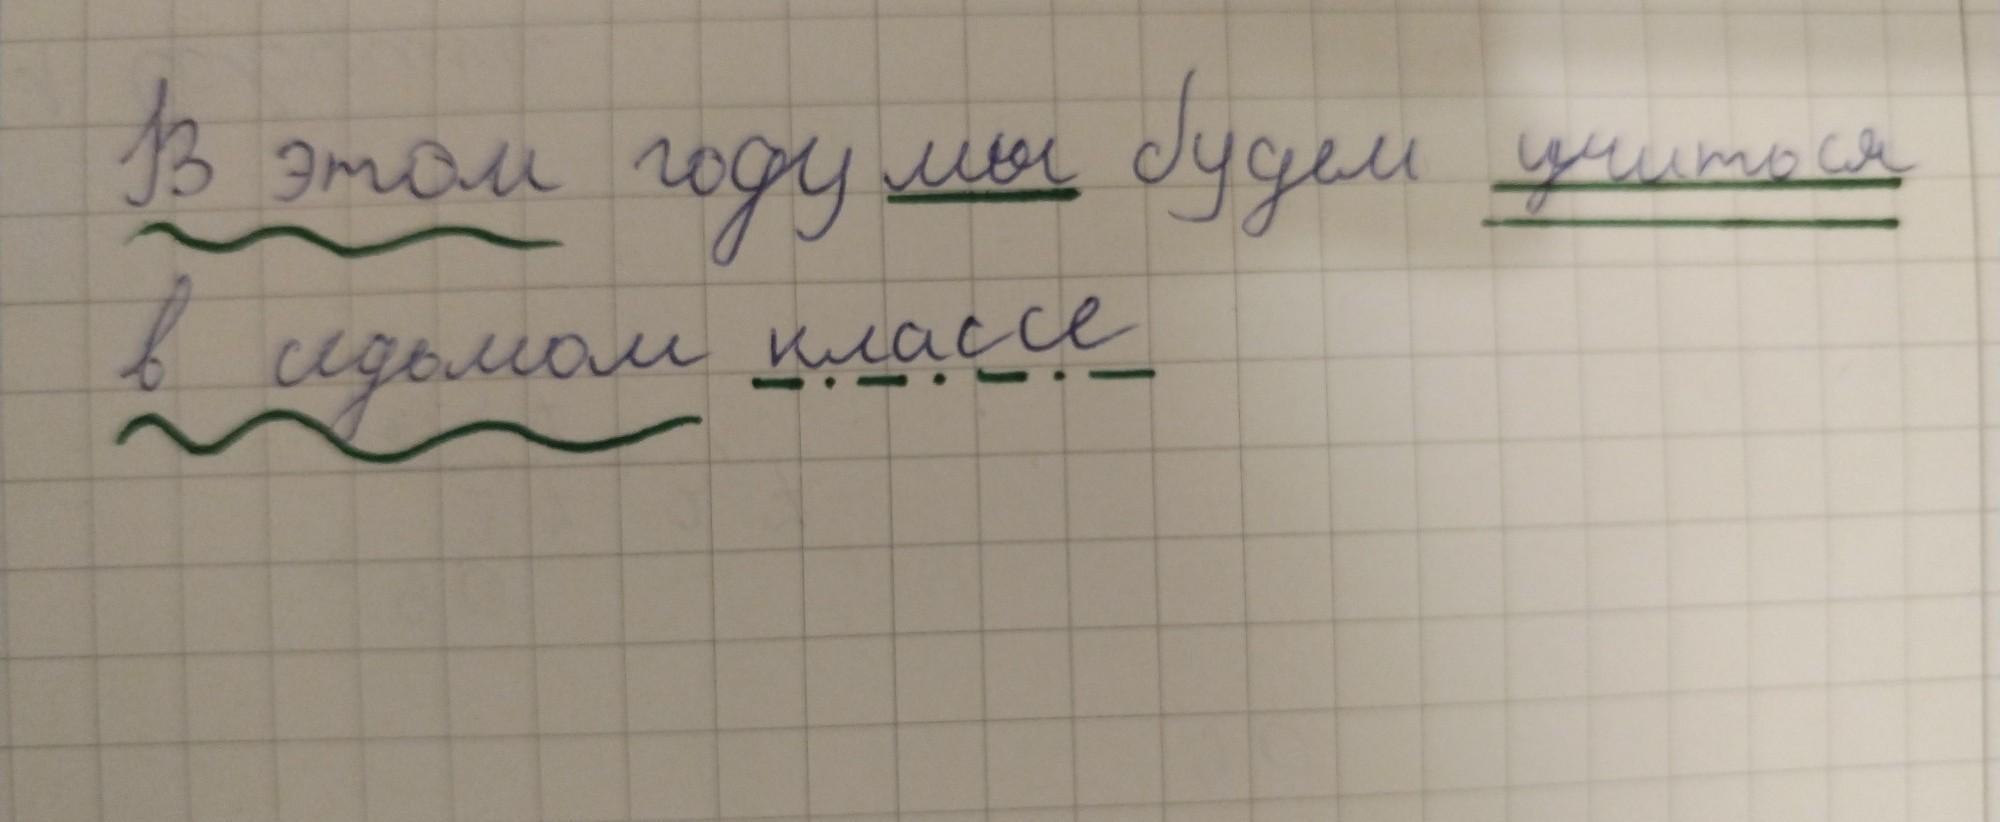 В этом году мы будем учиться
в седьмом классе